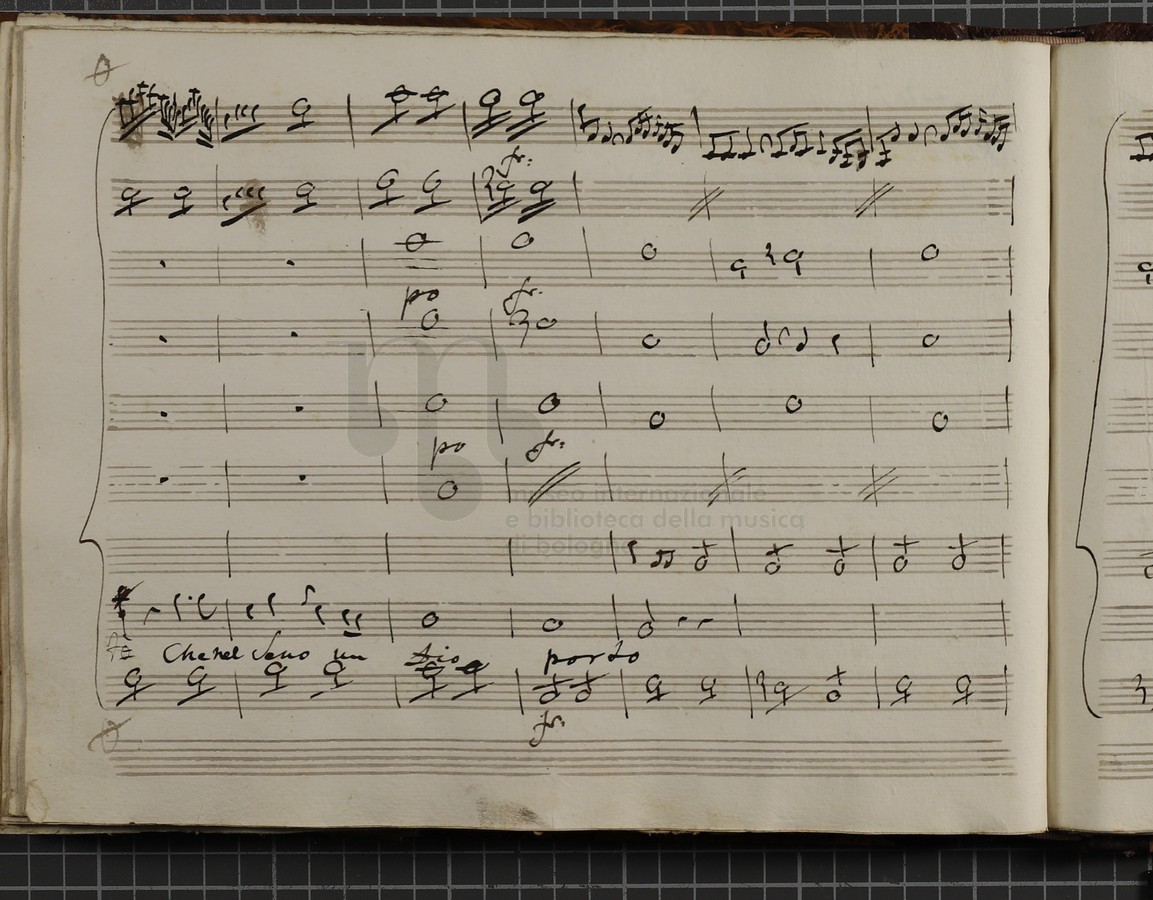 fr:
po
fr:
po
fr:
museo internazionale
e biblioteca della musica
di bologna
Che nel seno un Dio porto
fr: